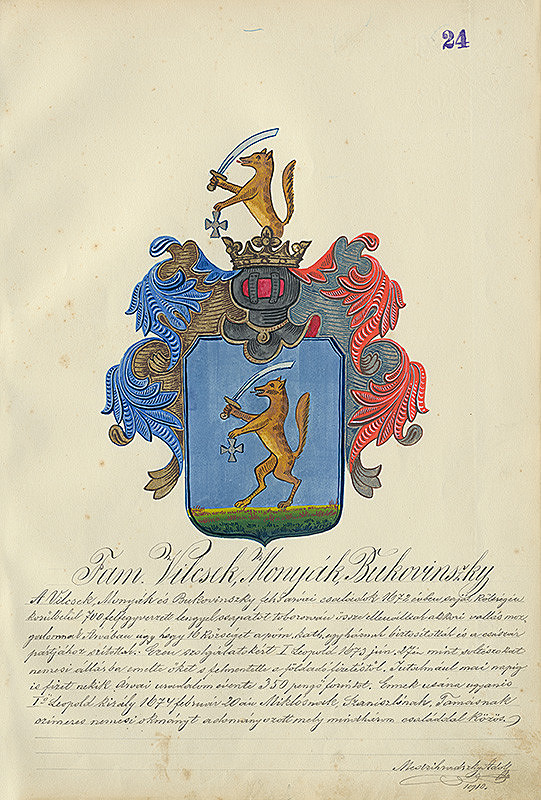 24
Fam. Vilcsek, Monyák, Bukovinszky
A Vilcsek, Monyák és Bukovinszky felső árvai családok 1672 évben saját költségén
körülbelül 700 felfegyverzett lengyel csapatot toborozván össze ellenállottak akkori vallás moz-
galomnak Árvában úgy hogy 16 községet a róm. kath. egyháznak biztosítottak és a császár
pártjához szítottak. Ezen szolgálatokért I. Leopold 1673 jún. mint soltészokat
nemesi állásba emelte őket s felmentette a földadó fizetéstől. Jutalmául mai napig
is fizet nekik Árvai uradalom évente 350 pengő forintot. Ennek utána ugyanis
I. Leopold király 1674 február 20án Miklósnak, Stanislának, Tamásnak
czímeres nemesi okmányt adományozott mely mindhárom családdal közös.
Adolf
1910.